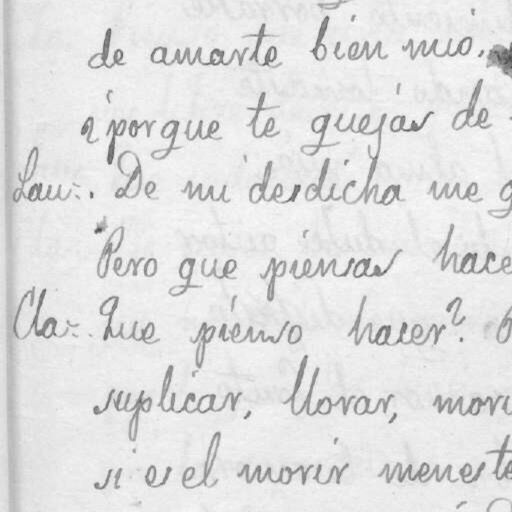 de amarte bien mio.
¿porque te quejas de
Lau-. De mi desdicha me
Pero que piensas hace
Cla-. Que piénso hacer?
suplicar, llorar, mori
si es el morir meneste